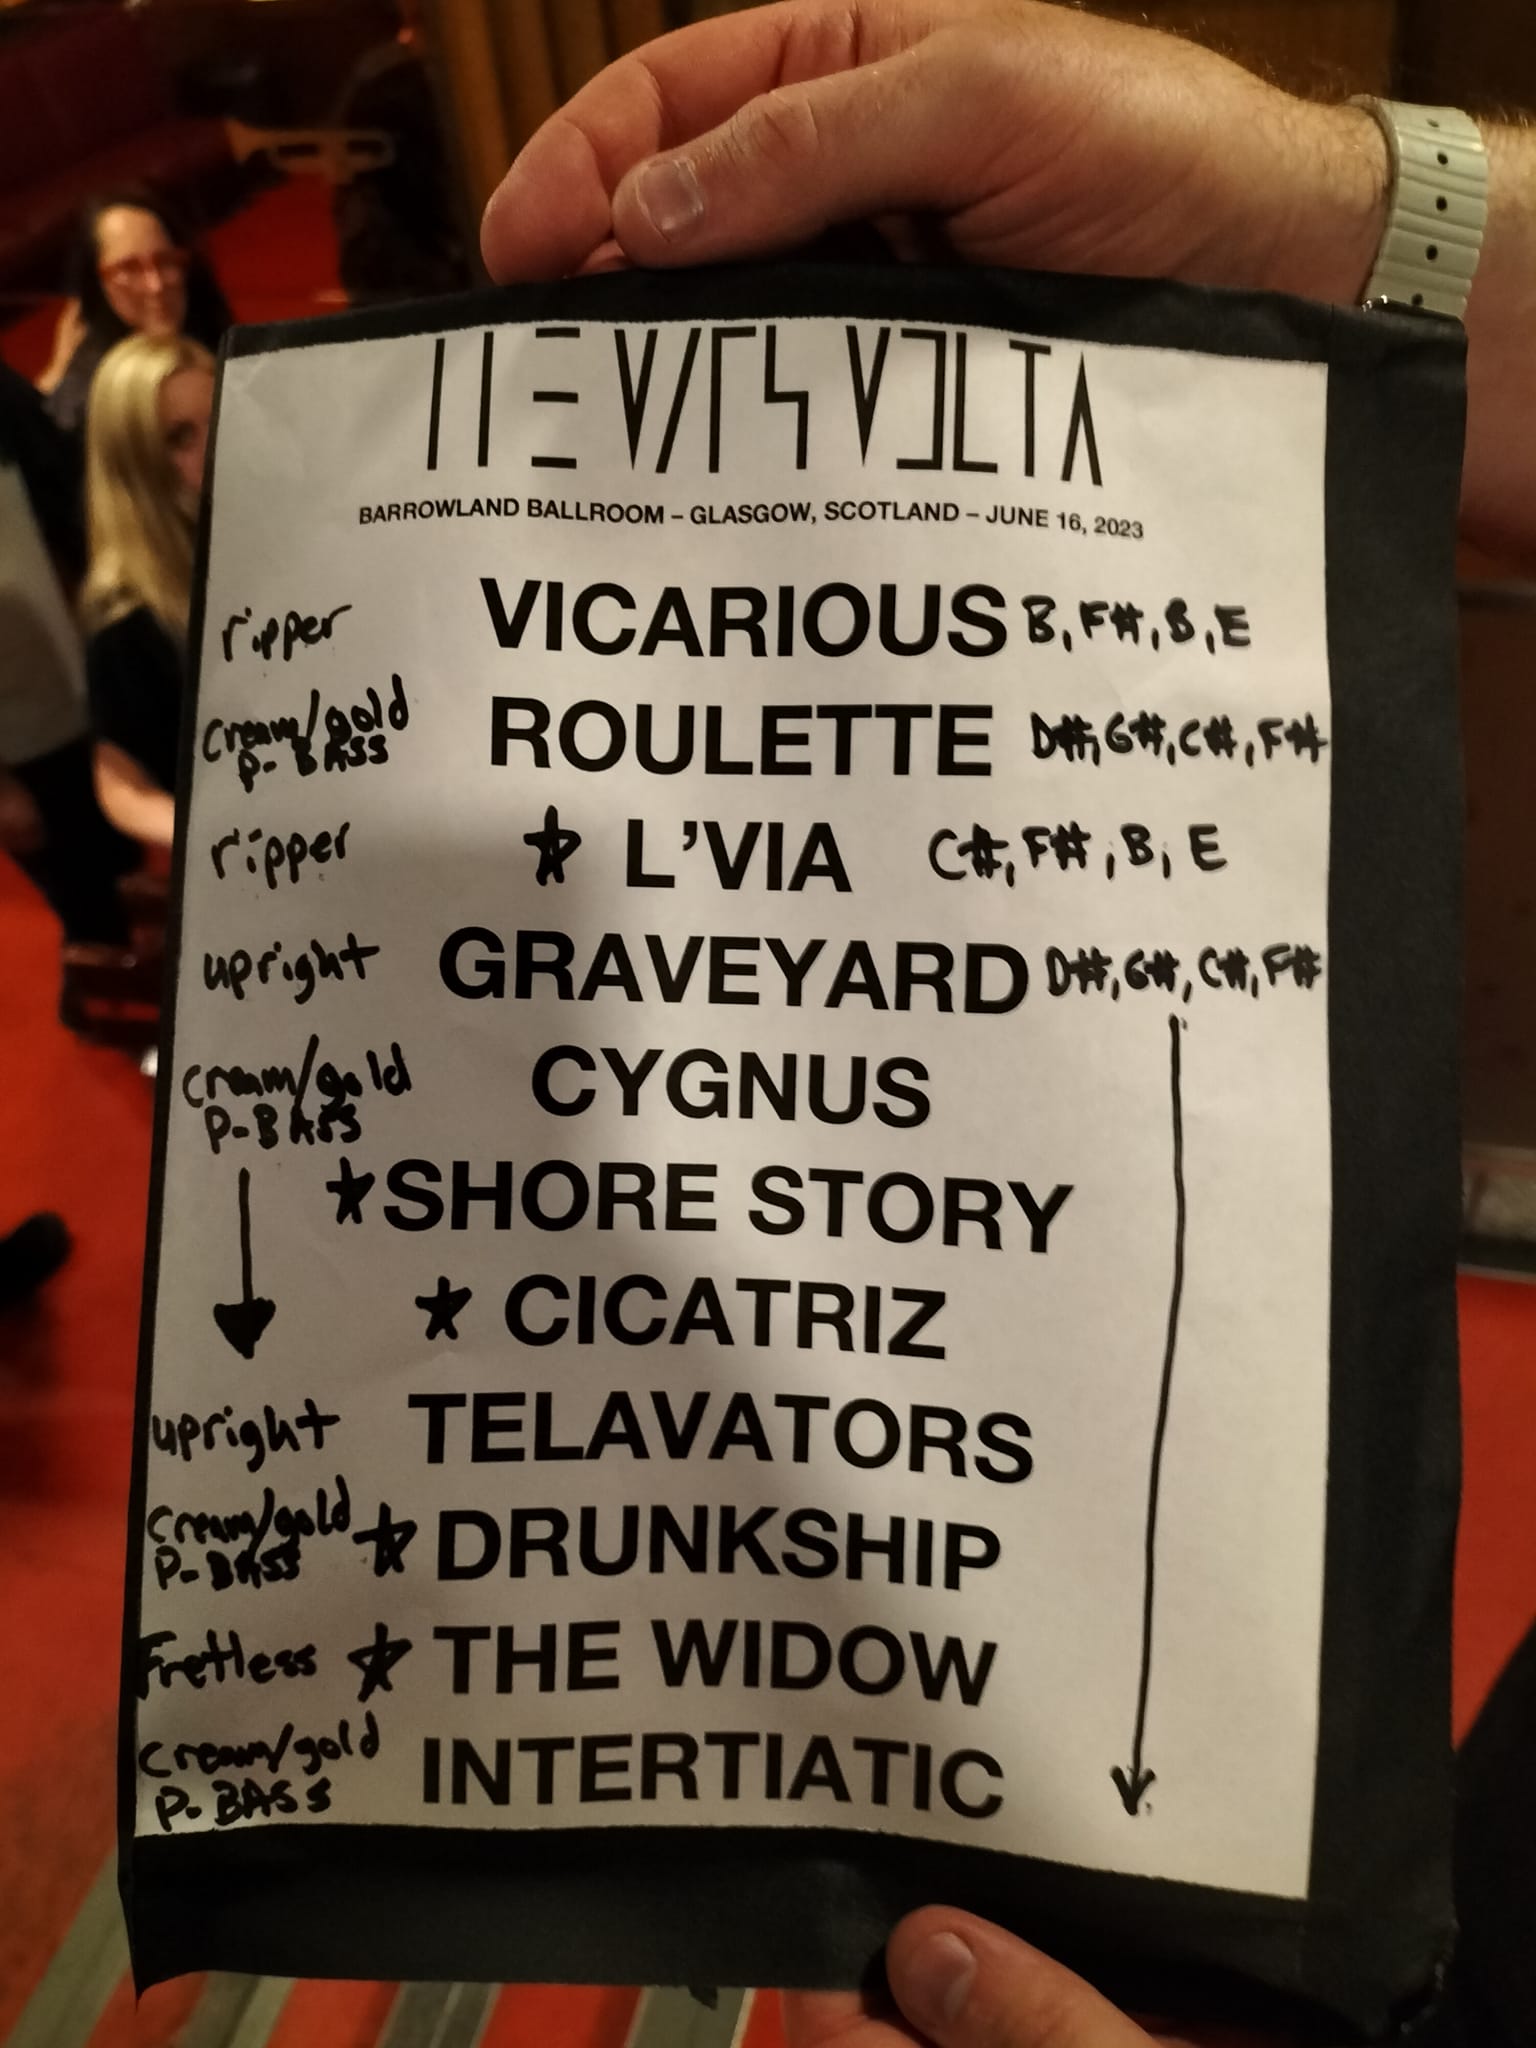 THE MARS VOLTA
BARROWLAND BALLROOM – GLASGOW, SCOTLAND – JUNE 16, 2023
ripper VICARIOUS B, F#, B, E
cream/gold P-BASS ROULETTE D#, G#, C#, F#
ripper ☆ L'VIA C#, F#, B, E
upright GRAVEYARD D#, G#, C#, F#
cream/gold P-BASS CYGNUS
☆ SHORE STORY
☆ CICATRIZ
upright TELAVATORS
cream/gold P-BASS ☆ DRUNKSHIP
Fretless ☆ THE WIDOW
cream/gold P-BASS INTERTIATIC